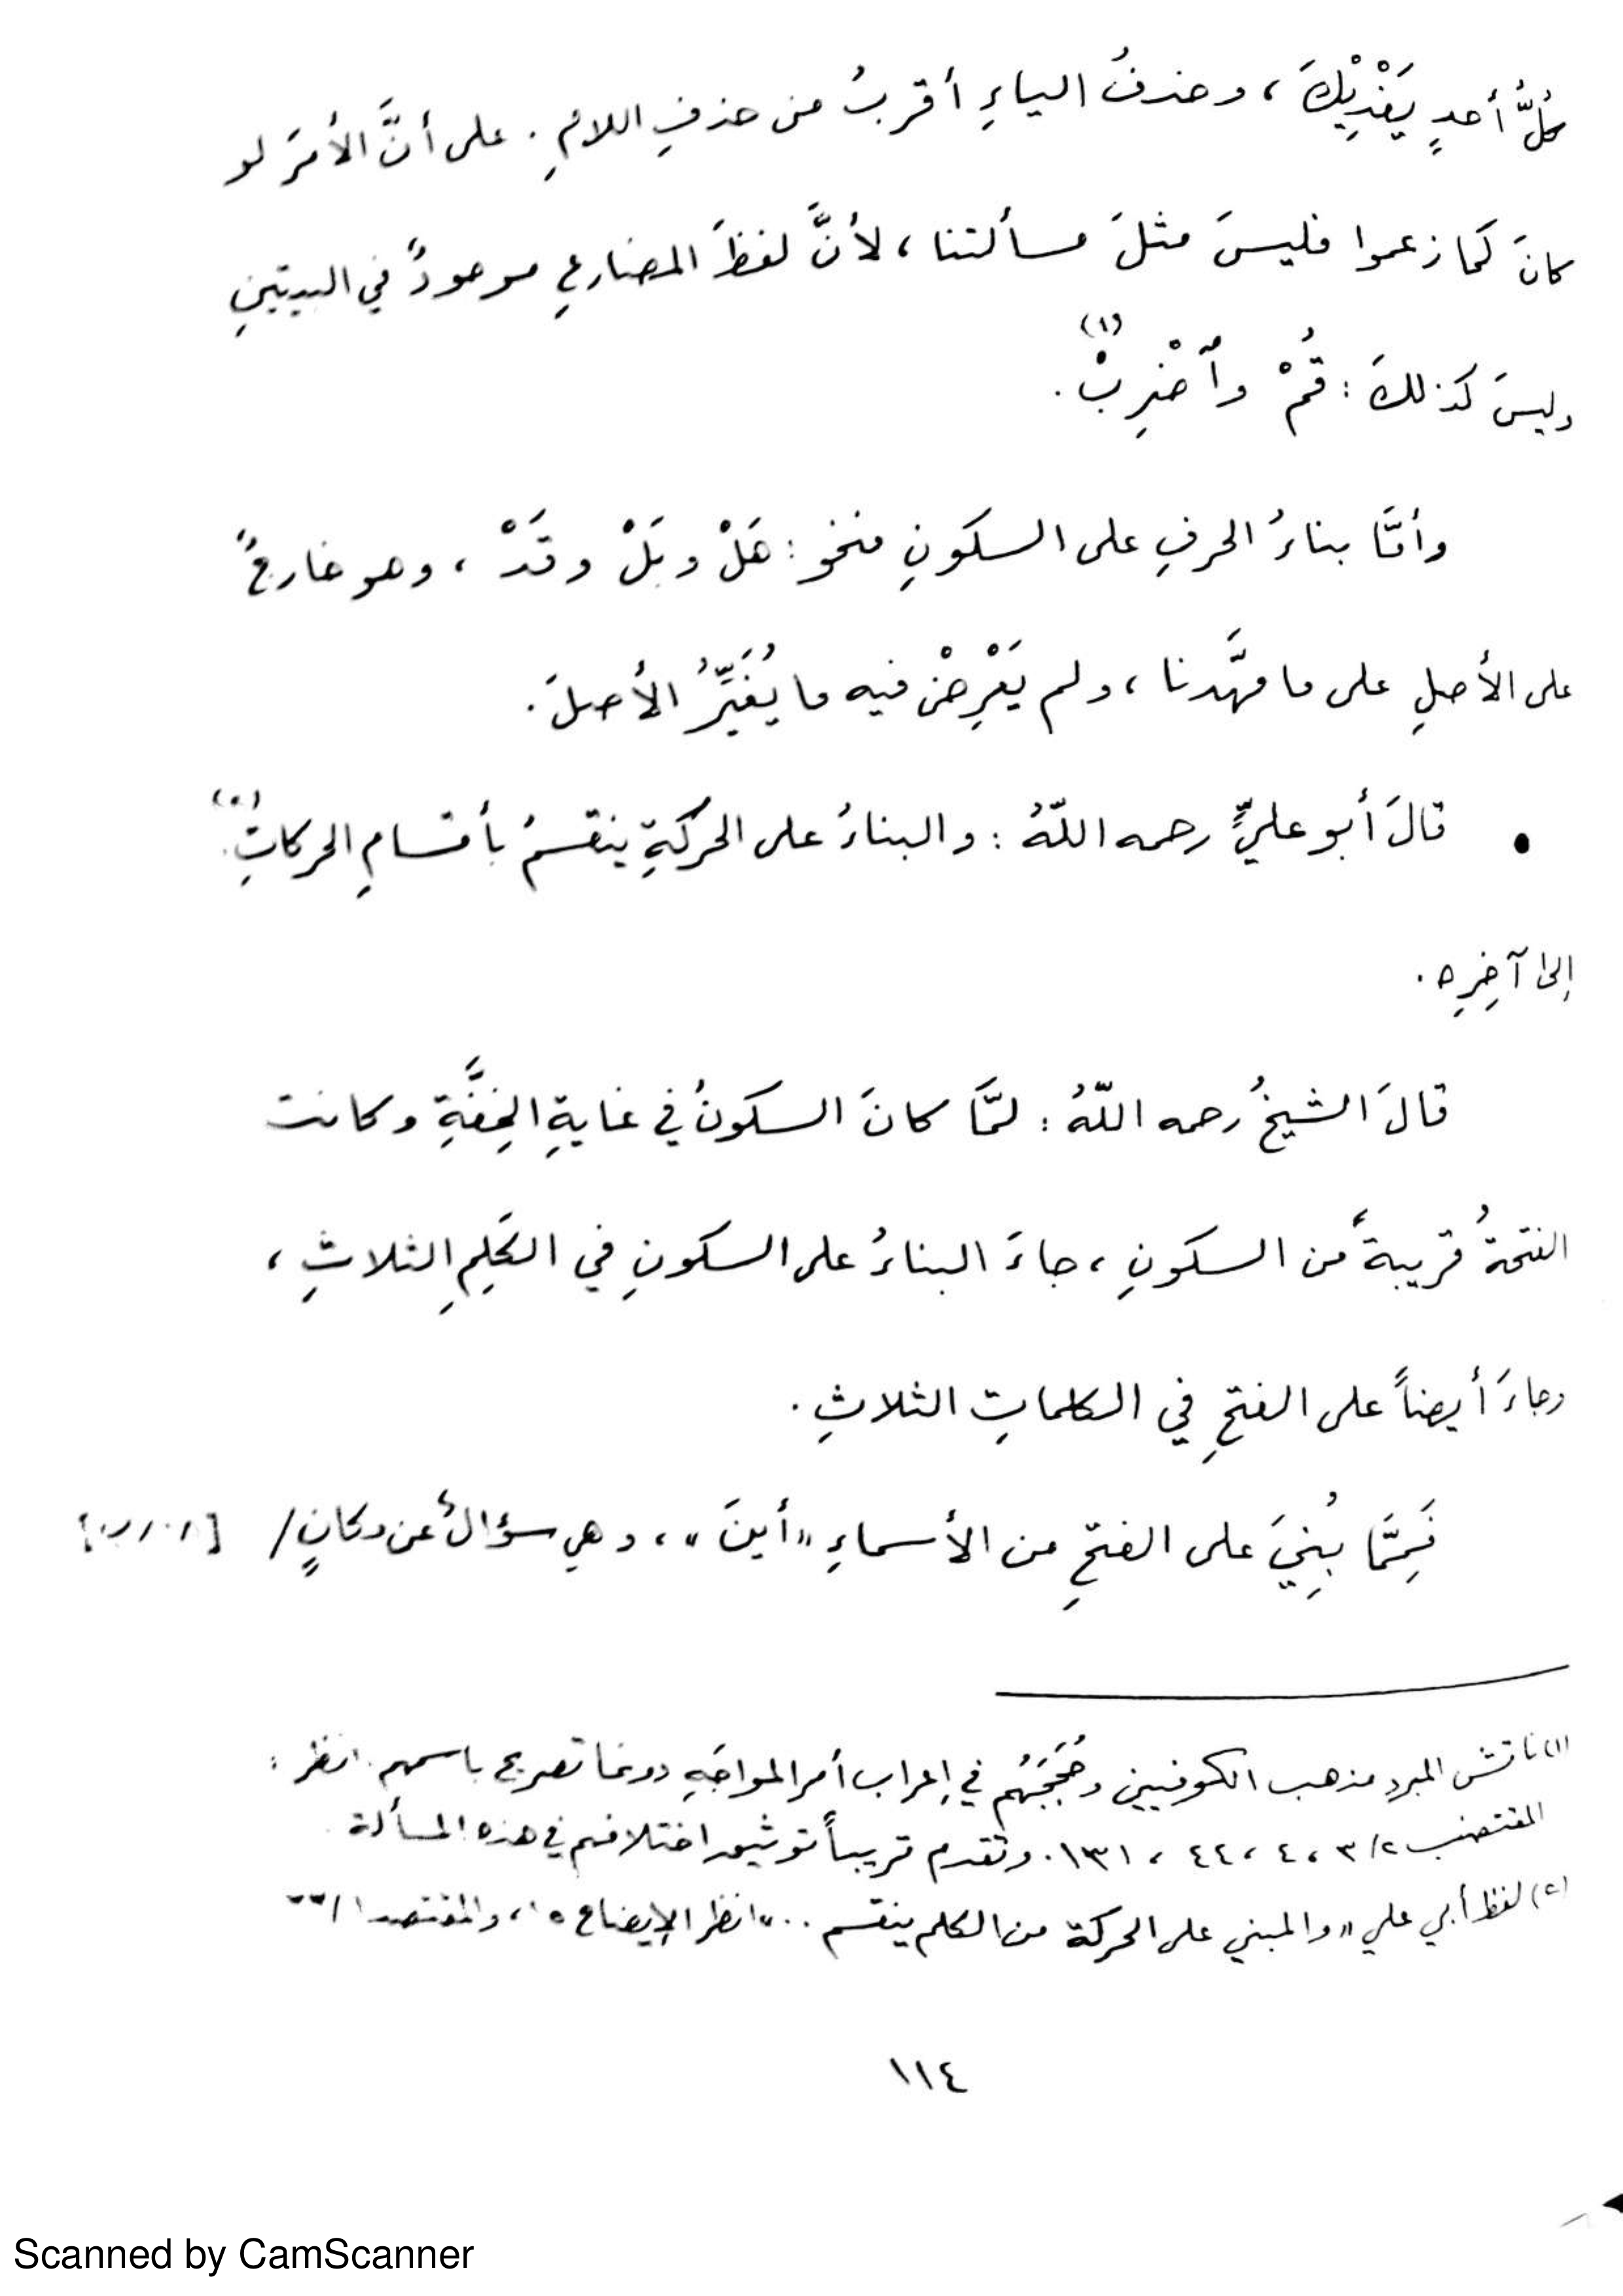 كُلُّ أحدٍ يَفْدِيْكَ ، وحذفُ الياءِ أقربُ من حذفِ اللامِ . على أنَّ الأمرَ لو
كانَ كَما زعموا فليسَ مثلَ مسألتنا ، لأنَّ لفظَ المضارعِ موجودٌ في البيتينِ
وليسَ كذلكَ : قُمْ وٱضْرِبْ (١) .
وأمَّا بناءُ الحرفِ على السكونِ فنحو : هَلْ وبَلْ وقَدْ ، وهو خارجٌ
على الأصلِ على ما مهَّدنا ، ولم يَعْرِضْ فيه ما يُغَيِّرُ الأصلَ .
• قالَ أبو عليٍّ رحمه اللّهُ : والبناءُ على الحركةِ ينقسمُ بأقسامِ الحركاتِ
إلى آخِرِه .
قالَ الشيخُ رحمه اللّهُ : لمَّا كانَ السكونُ في غايةِ الخِفَّةِ وكانت
الفتحةُ قريبةً من السكونِ ، جاءَ البناءُ على السكونِ في الكَلِمِ الثلاثِ ،
وجاءَ أيضاً على الفتحِ في الكلماتِ الثلاثِ .
فَمِمَّا بُنِيَ على الفتحِ من الأسماءِ « أينَ » ، وهي سؤالٌ عن مكانٍ /
(١) ناقش المبرد مذهب الكوفيين وحُجَجَهُم في إعراب أمر المواجَهِ دونما تصريح باسمهم . انظر :
المقتضب ٢/ ٣ ، ٤ ، ٤٤ ، ١٣١ . وتقدم قريباً توثيق اختلافهم في هذه المسألة
(٢) لفظ أبي علي « والمبني على الحركة من الكلم ينقسم .. » انظر الإيضاح ١٥ ، والمقتصد ١/
١١٤
Scanned by CamScanner